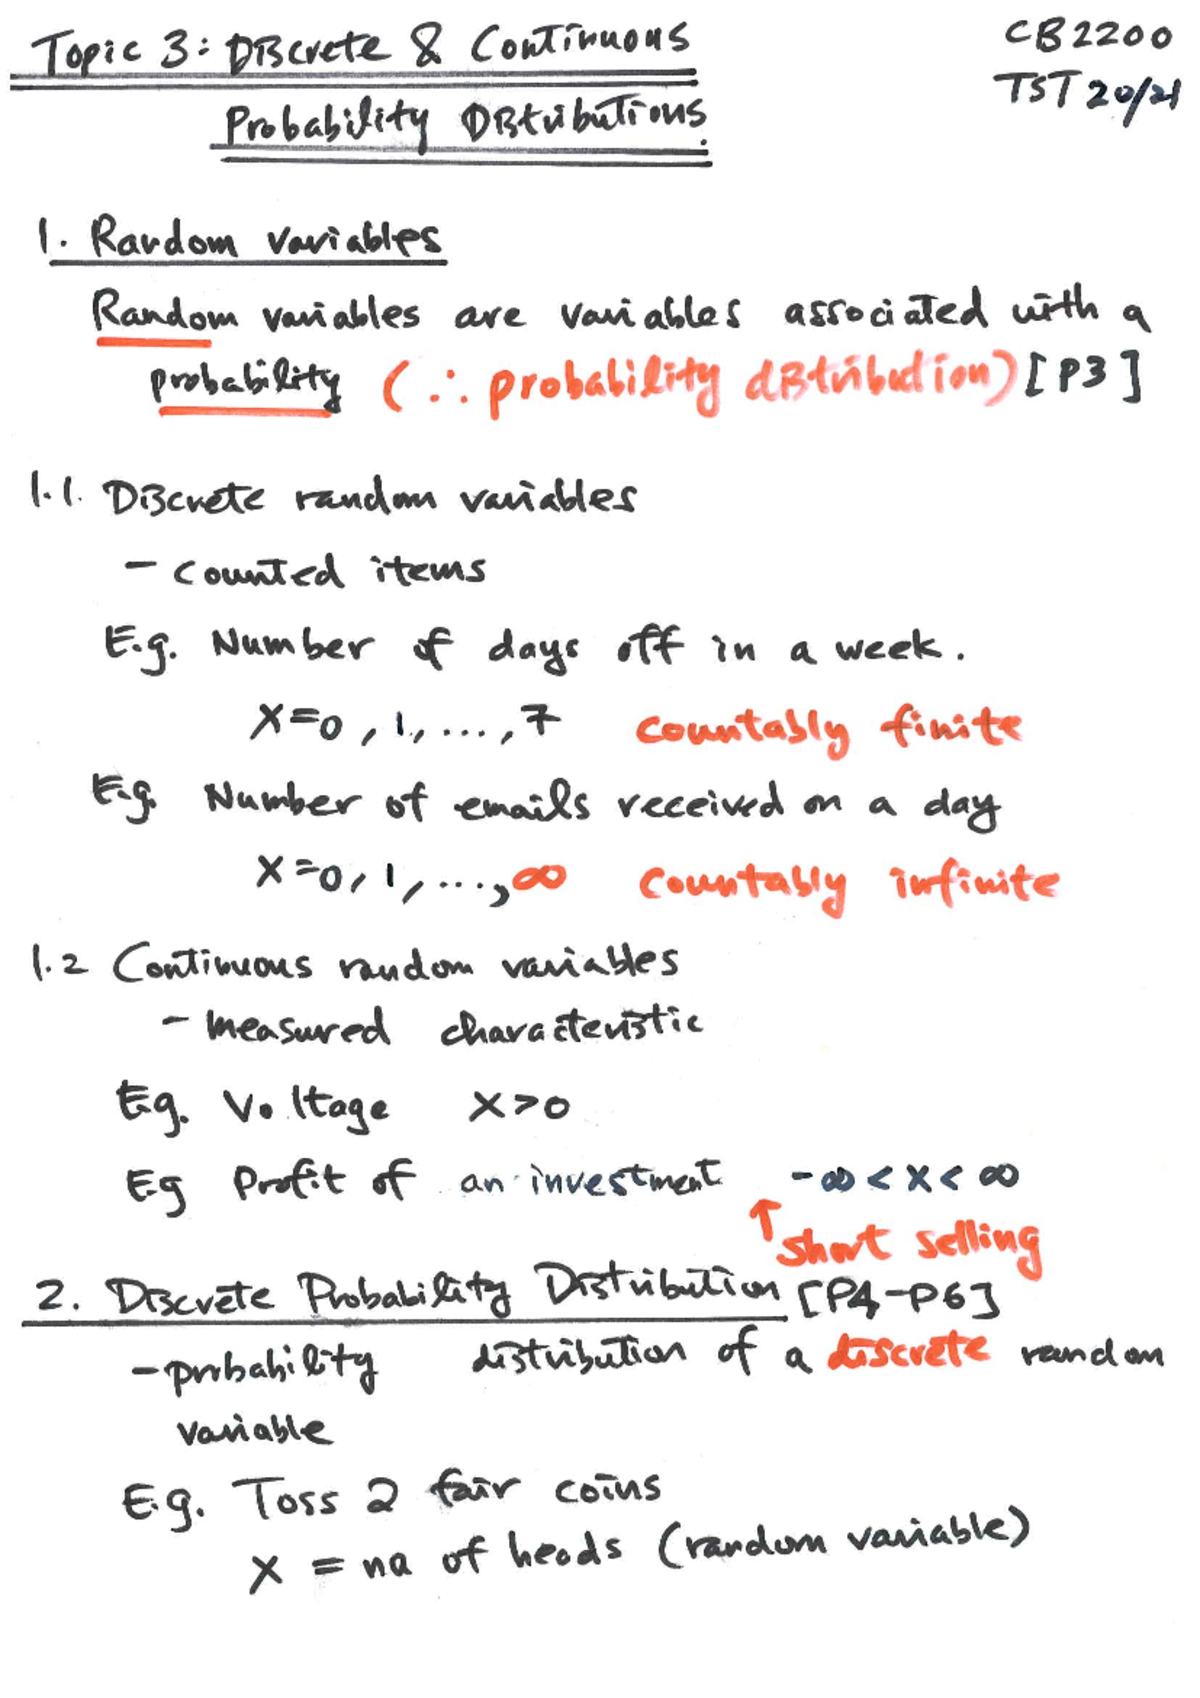 Topic 3: Discrete & Continuous
CB2200
Probability Distributions.
TST 20/21
1. Random variables
Random variables are variables associated with a
probability (∴ probability distribution) [P3]
1.1. Discrete random variables
- counted items
E.g. Number of days off in a week.
X=0, 1, ..., 7 countably finite
E.g. Number of emails received on a day
X=0, 1, ..., ∞ countably infinite
1.2 Continuous random variables
- measured characteristic
E.g. Voltage X>0
E.g Profit of an investment -∞ < X < ∞
↑ short selling
2. Discrete Probability Distribution [P4-P6]
- probability distribution of a discrete random
variable
E.g. Toss 2 fair coins
X = no of heads (random variable)